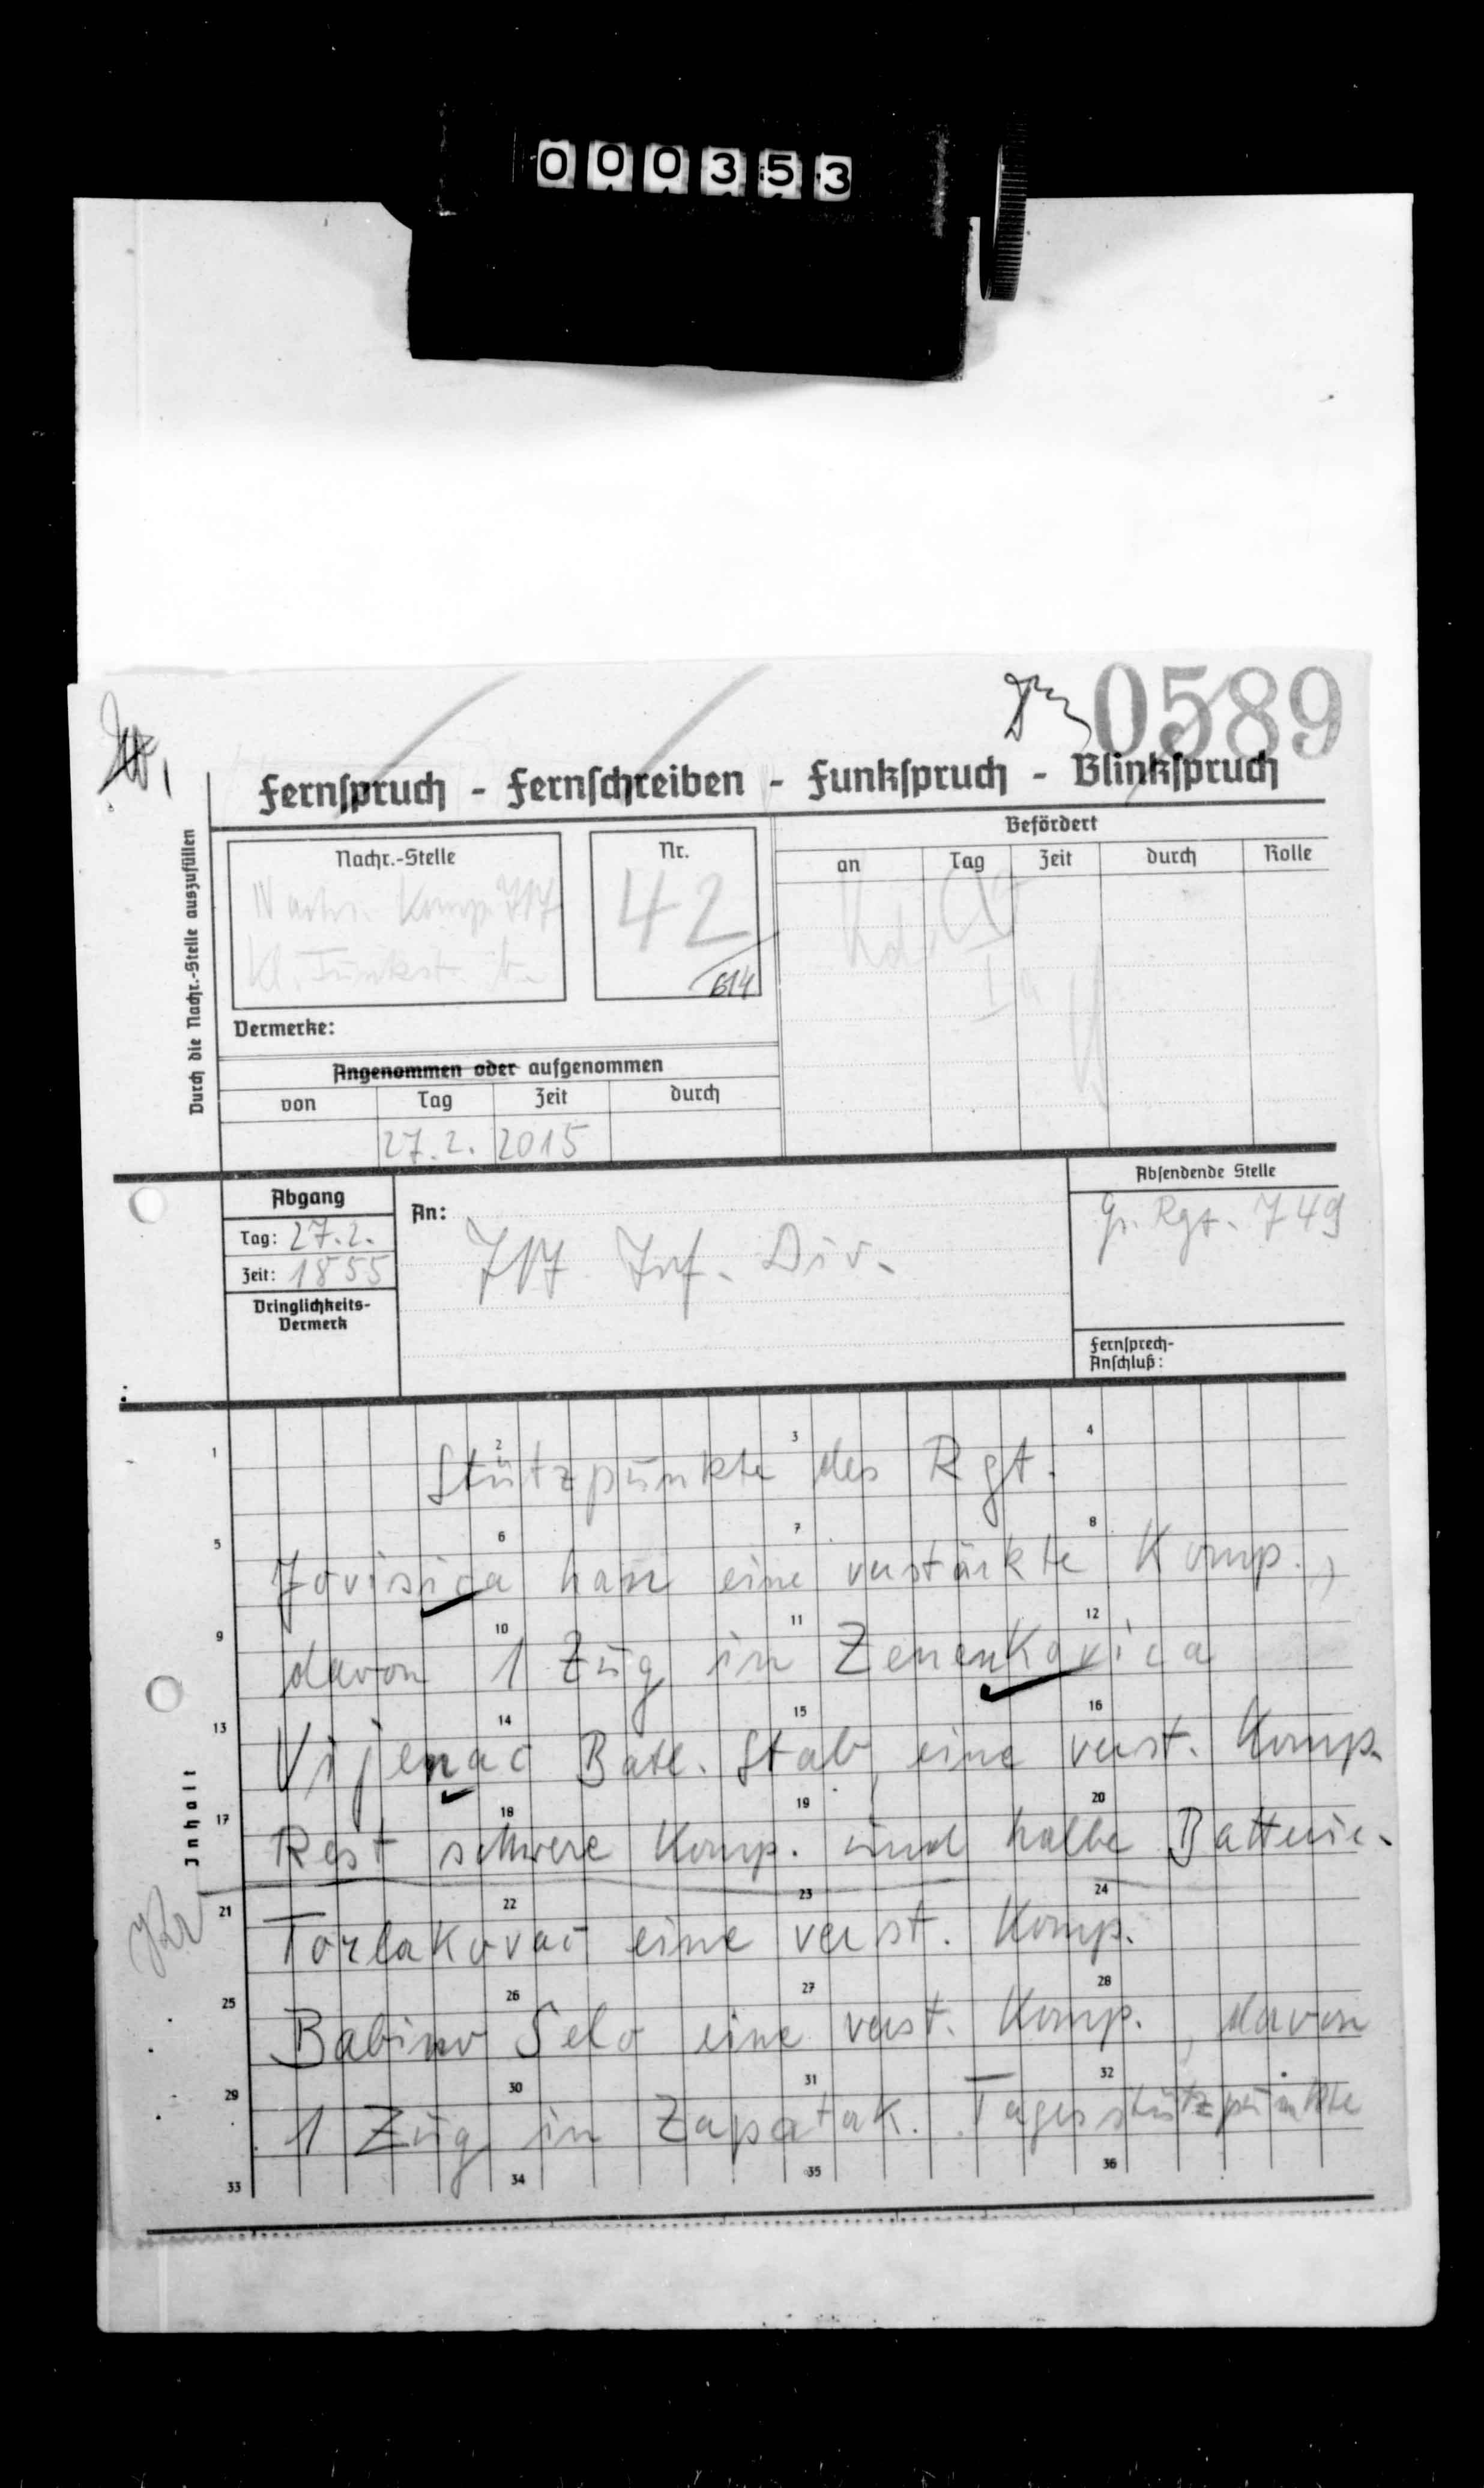 000353
0589
Fernspruch - Fernschreiben - Funkspruch - Blinkspruch
Durch die Nachr.-Stelle auszufüllen
Nachr.-Stelle
Nachr. Komp. 717
kl. Funkst. b.
Nr.
42
614
Befördert
an Tag Zeit durch Rolle
Ia
Vermerke:
Angenommen oder aufgenommen
von Tag Zeit durch
27.2. 2015
Abgang
Tag: 27.2.
Zeit: 1855
Dringlichkeits-
Vermerk
An:
717 Inf. Div.
Absendende Stelle
Gr. Rgt. 749
Fernsprech-
Anschluß:
Inhalt
1 2 3 4
Stützpunkte des Rgt.
5 6 7 8
Jovisica han eine verstärkte Komp.,
9 10 11 12
davon 1 Zug in Zenenkovica
13 14 15 16
Vijenac Batl. Stab, eine verst. Komp.
17 18 19 20
Rest schwere Komp. und halbe Batterie.
21 22 23 24
Torlakovac eine verst. Komp.
25 26 27 28
Babino Selo eine verst. Komp., davon
29 30 31 32
1 Zug in Zapotok. Tagesstützpunkte
33 34 35 36